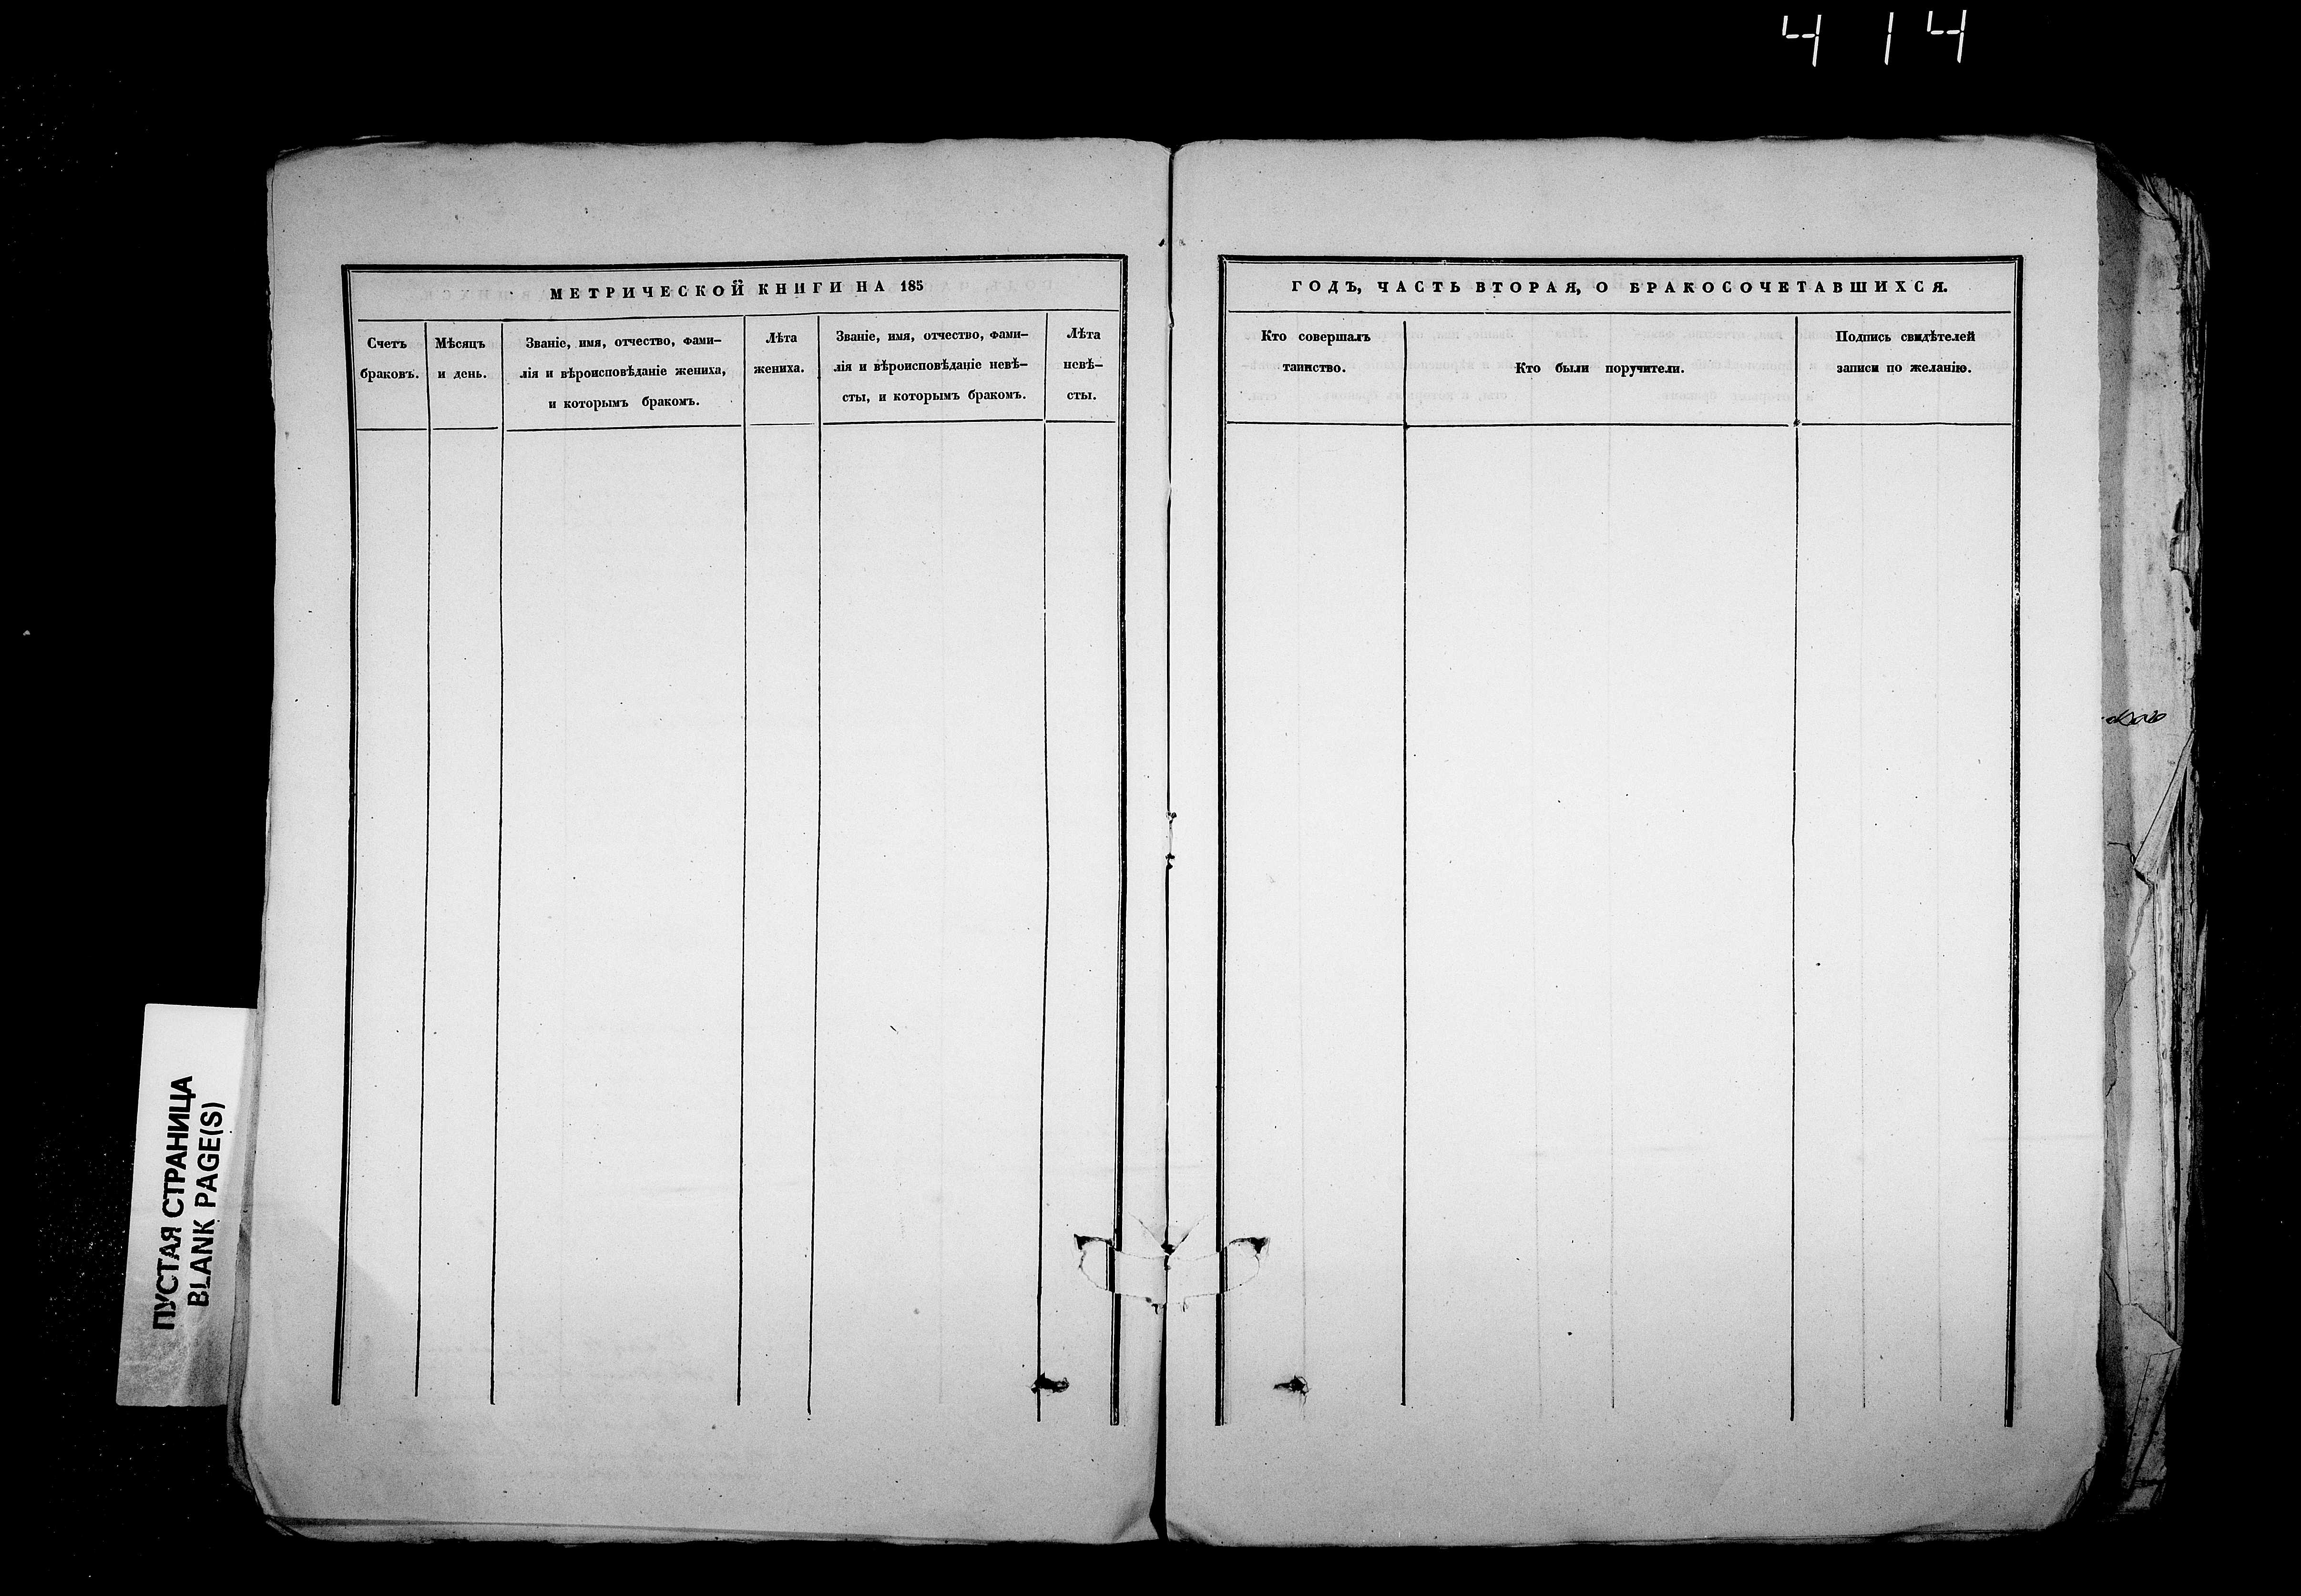 4 14
МЕТРИЧЕСКОЙ КНИГИ НА 185
Счетъ
браковъ.
Мѣсяцъ
и день.
Званіе, имя, отчество, фами–
лія и вѣроисповѣданіе жениха,
и которымъ бракомъ.
Лѣта
жениха.
Званіе, имя, отчество, фами–
лія и вѣроисповѣданіе невѣ–
сты, и которымъ бракомъ.
Лѣта
невѣ–
сты.
ГОДЪ, ЧАСТЬ ВТОРАЯ, О БРАКОСОЧЕТАВШИХСЯ.
Кто совершалъ
таинство.
Кто были поручители.
Подпись свидѣтелей
записи по желанію.
ПУСТАЯ СТРАНИЦА
BLANK PAGE(S)